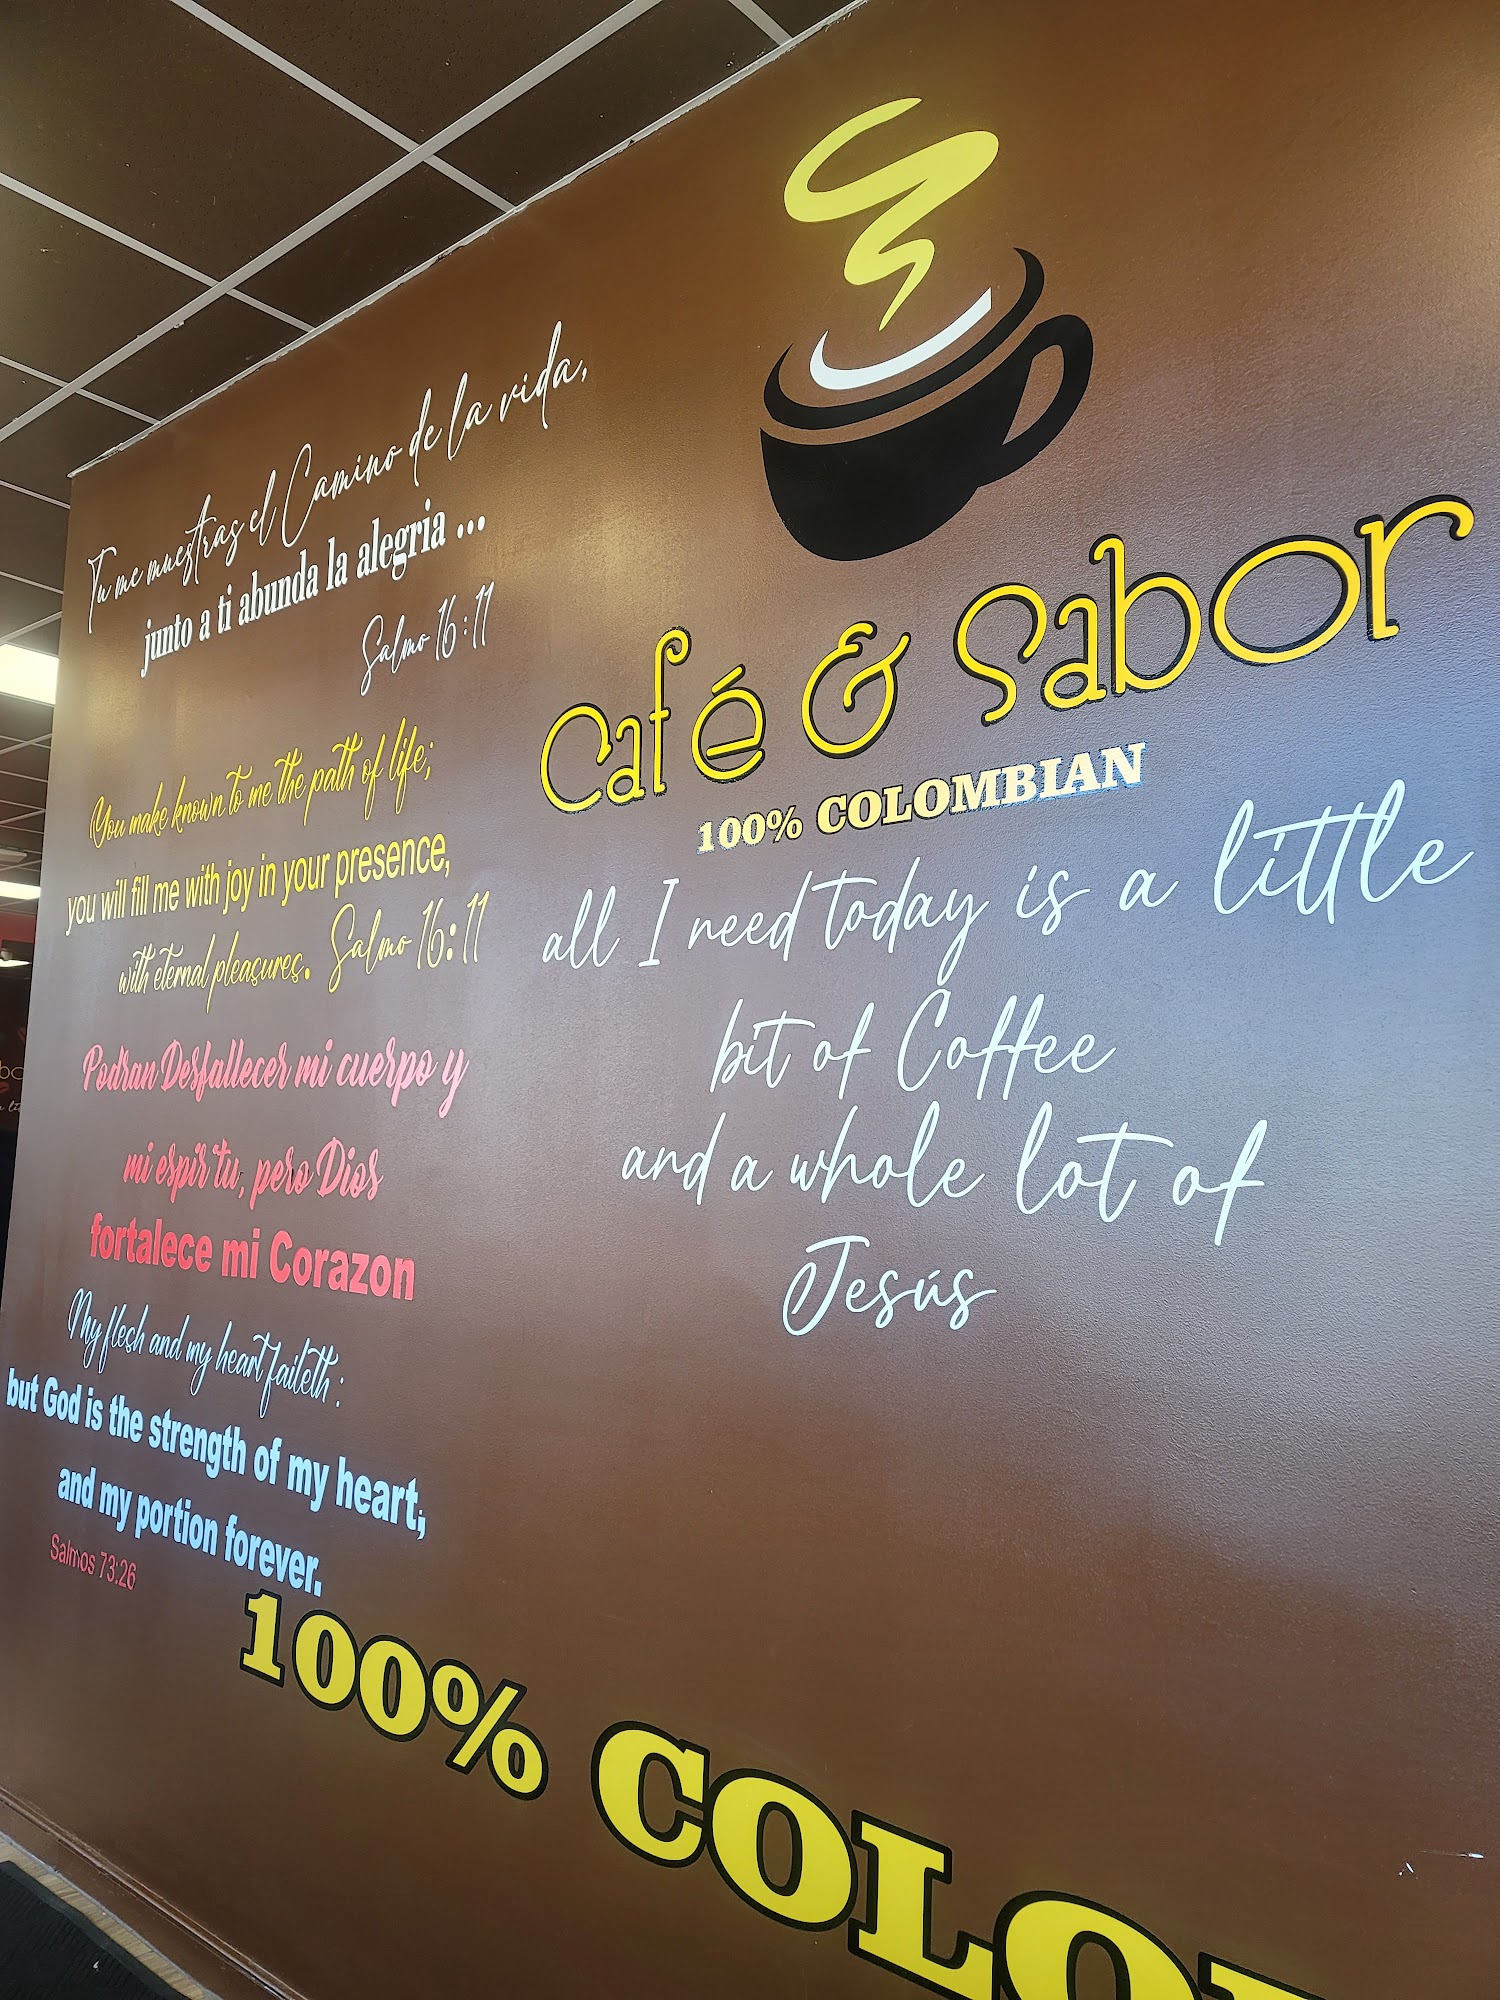 Tu me muestras el Camino de la vida,
junto a ti abunda la alegria ...
Salmo 16:11
You make known to me the path of life;
you will fill me with joy in your presence,
with eternal pleasures. Salmo 16:11
Podran Desfallecer mi cuerpo y
mi espirtu, pero Dios
fortalece mi Corazon
My flesh and my heart faileth:
but God is the strength of my heart,
and my portion forever.
Salmos 73:26
Café & Sabor
100% COLOMBIAN
all I need today is a little
bit of Coffee
and a whole lot of
Jesús
100% COLO